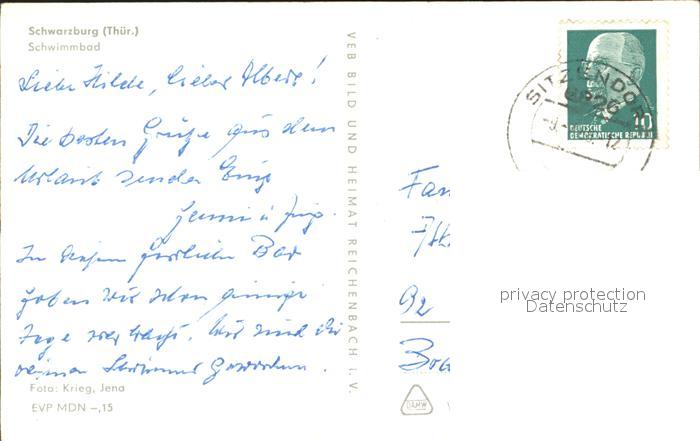 Schwarzburg (Thür.)
Schwimmbad
Liebe Hilde, lieber Albert!
Die besten Grüße aus dem
Urlaub senden Euch
In diesem herrlichen Bad
haben wir schon einige
Tage verbracht. Wir sind die
reinen Schwimmer Geworden.
Foto: Krieg, Jena
EVP MDN –,15
VEB BILD UND HEIMAT REICHENBACH i. V.
SITZENDORF
6826
10
DEUTSCHE
DEMOKRATISCHE REPUBLIK
Fam
92
privacy protection
Datenschutz